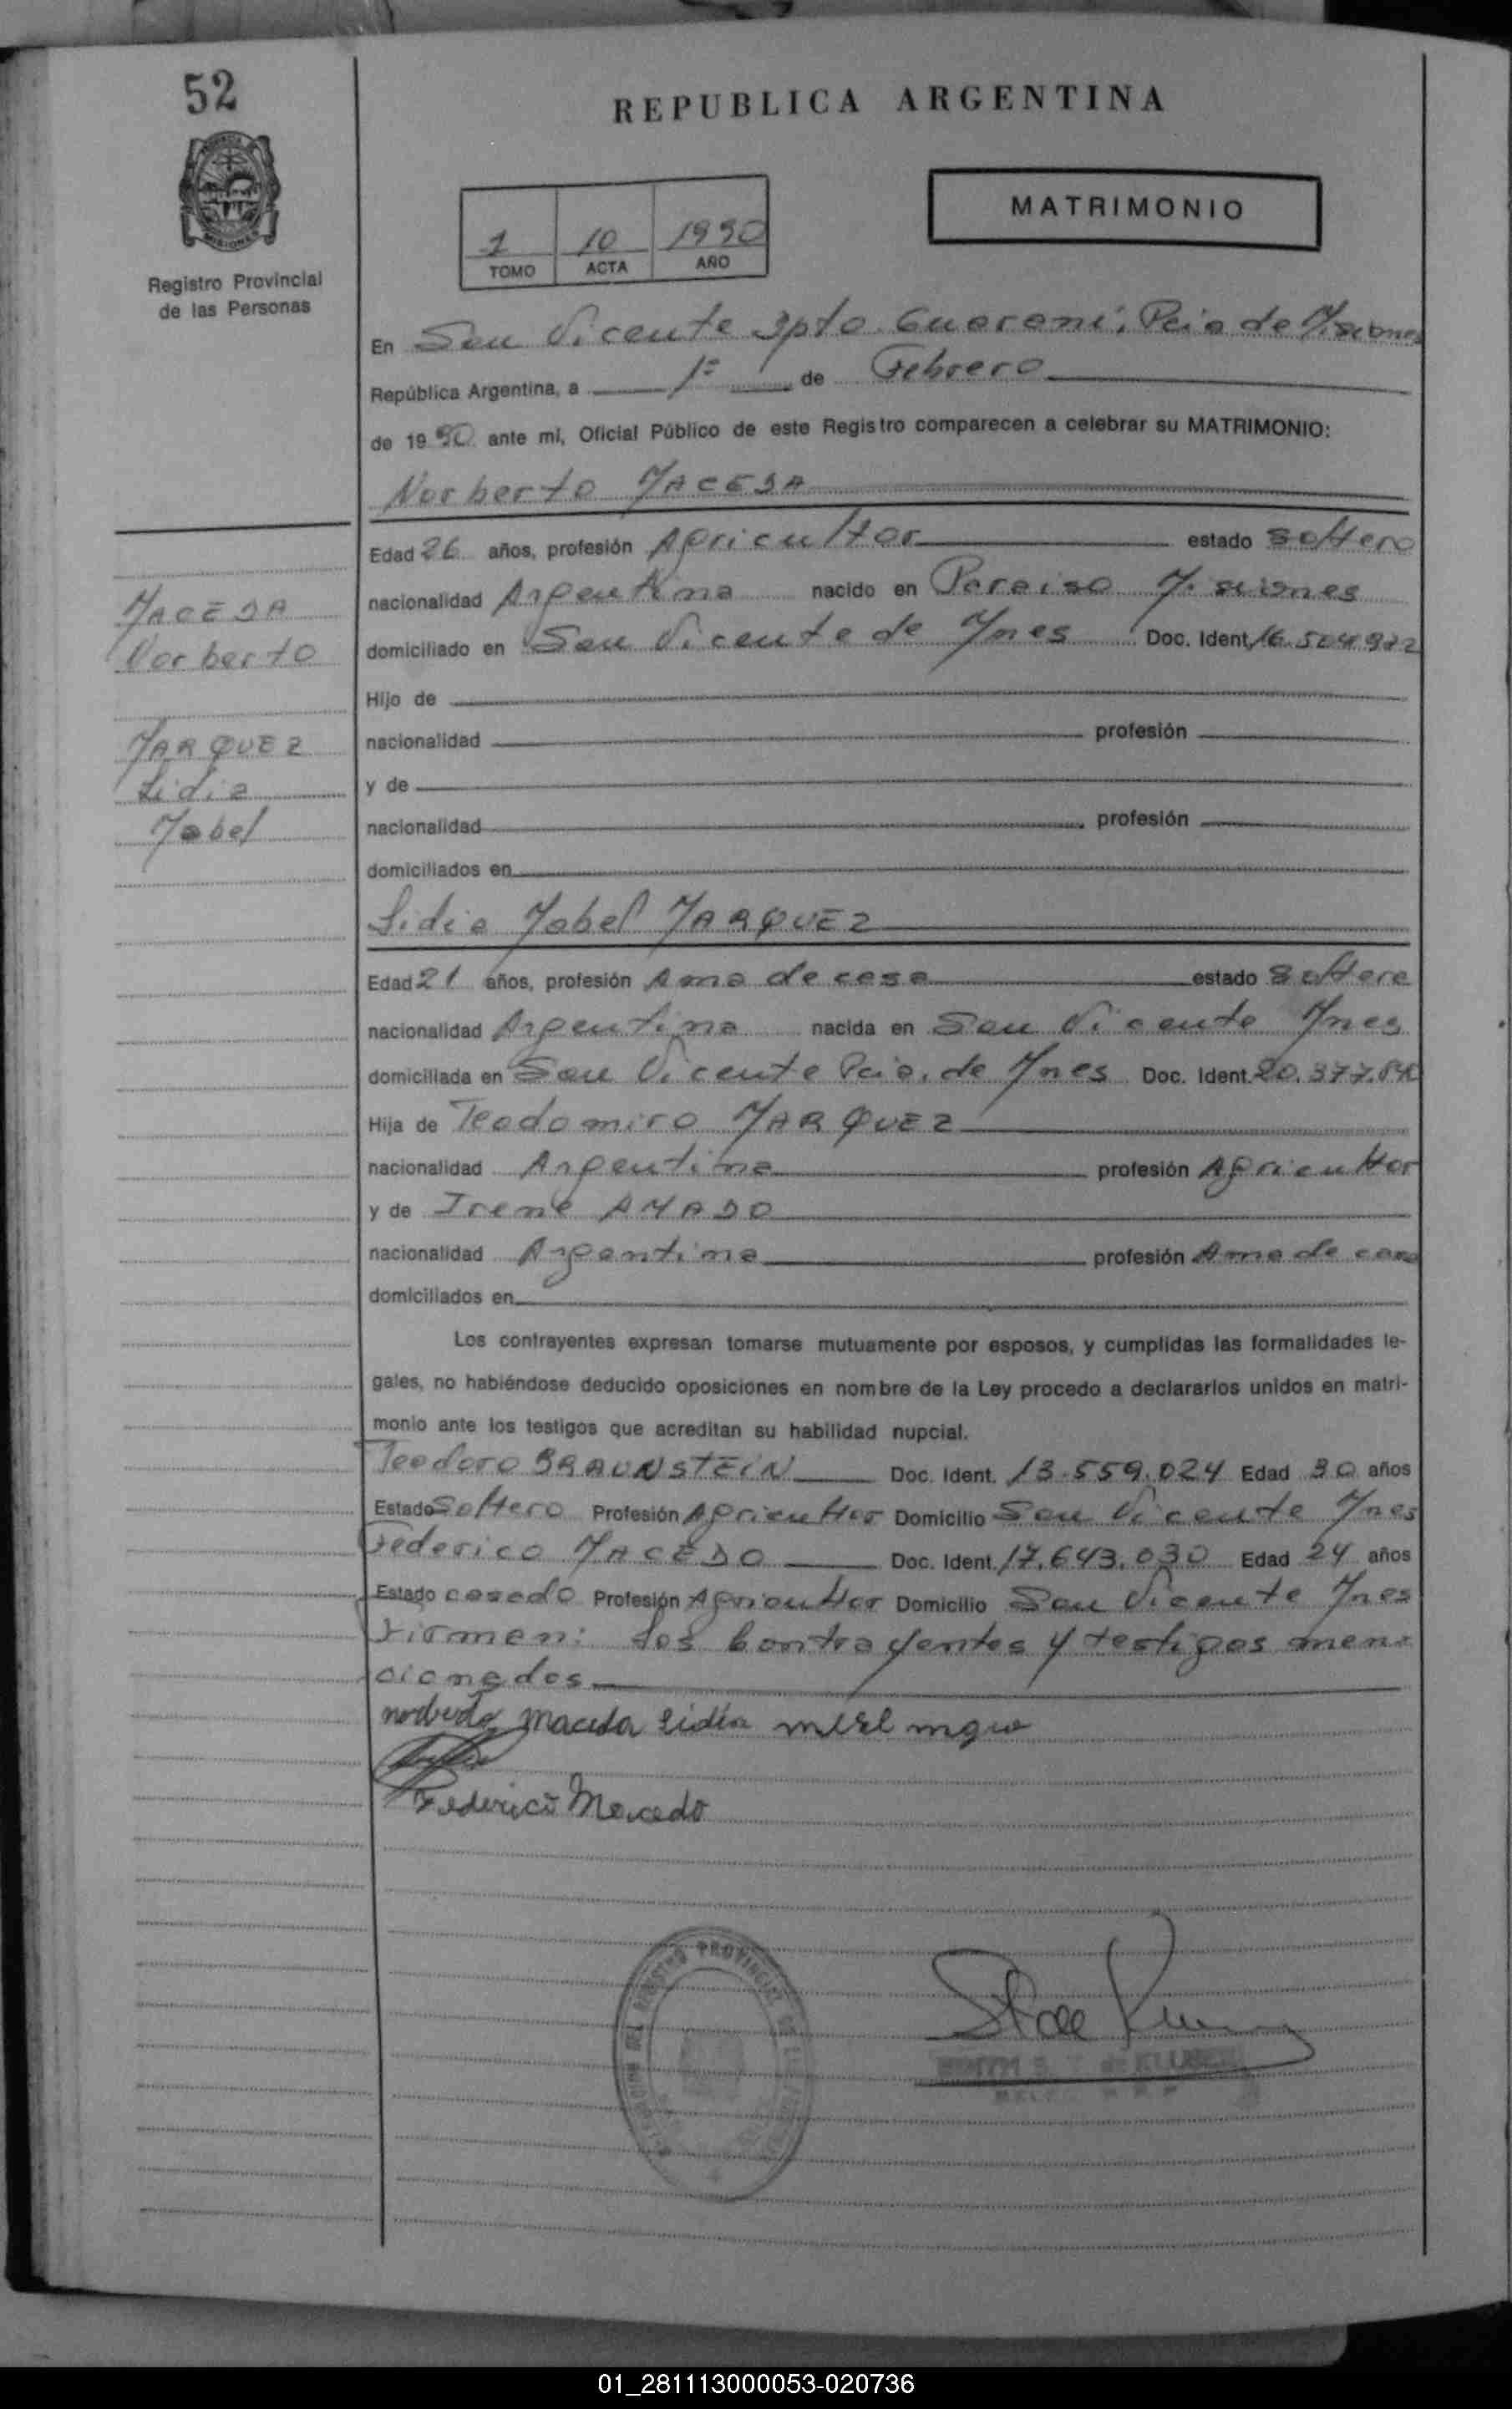 52
REPUBLICA ARGENTINA
MATRIMONIO
1 10 1990
TOMO ACTA AÑO
Registro Provincial
de las Personas
En San Vicente Dpto. Guaraní, Pcia de Misiones
República Argentina, a 1º de Febrero
de 1990 ante mí, Oficial Público de este Registro comparecen a celebrar su MATRIMONIO:
Norberto MACEDA
Edad 26 años, profesión Agricultor estado soltero
nacionalidad Argentina nacido en Paraiso Misiones
domiciliado en San Vicente de Mnes Doc. Ident. 16.504.972
MACEDA
Norberto
Hijo de
nacionalidad profesión
y de
nacionalidad profesión
domiciliados en
MARQUEZ
Lidia
Mabel
Lidia Mabel MARQUEZ
Edad 21 años, profesión Ama de casa estado soltera
nacionalidad Argentina nacida en San Vicente Mnes
domiciliada en San Vicente Pcia. de Mnes Doc. Ident. 20.377.
Hija de Teodomiro MARQUEZ
nacionalidad Argentina profesión Agricultor
y de Irene AMADO
nacionalidad Argentina profesión Ama de casa
domiciliados en
Los contrayentes expresan tomarse mutuamente por esposos, y cumplidas las formalidades le-
gales, no habiéndose deducido oposiciones en nombre de la Ley procedo a declararlos unidos en matri-
monio ante los testigos que acreditan su habilidad nupcial.
Teodoro BRAUNSTEIN Doc. Ident. 13.559.024 Edad 30 años
Estado Soltero Profesión Agricultor Domicilio San Vicente Mnes
Federico MACEDO Doc. Ident. 17.643.030 Edad 24 años
Estado casado Profesión Agricultor Domicilio San Vicente Mnes
Firman: Los Contrayentes y testigos men-
cionados
maceda Lidia
Federico Macedo
REGISTRO PROVINCIAL DE LAS
01_281113000053-020736